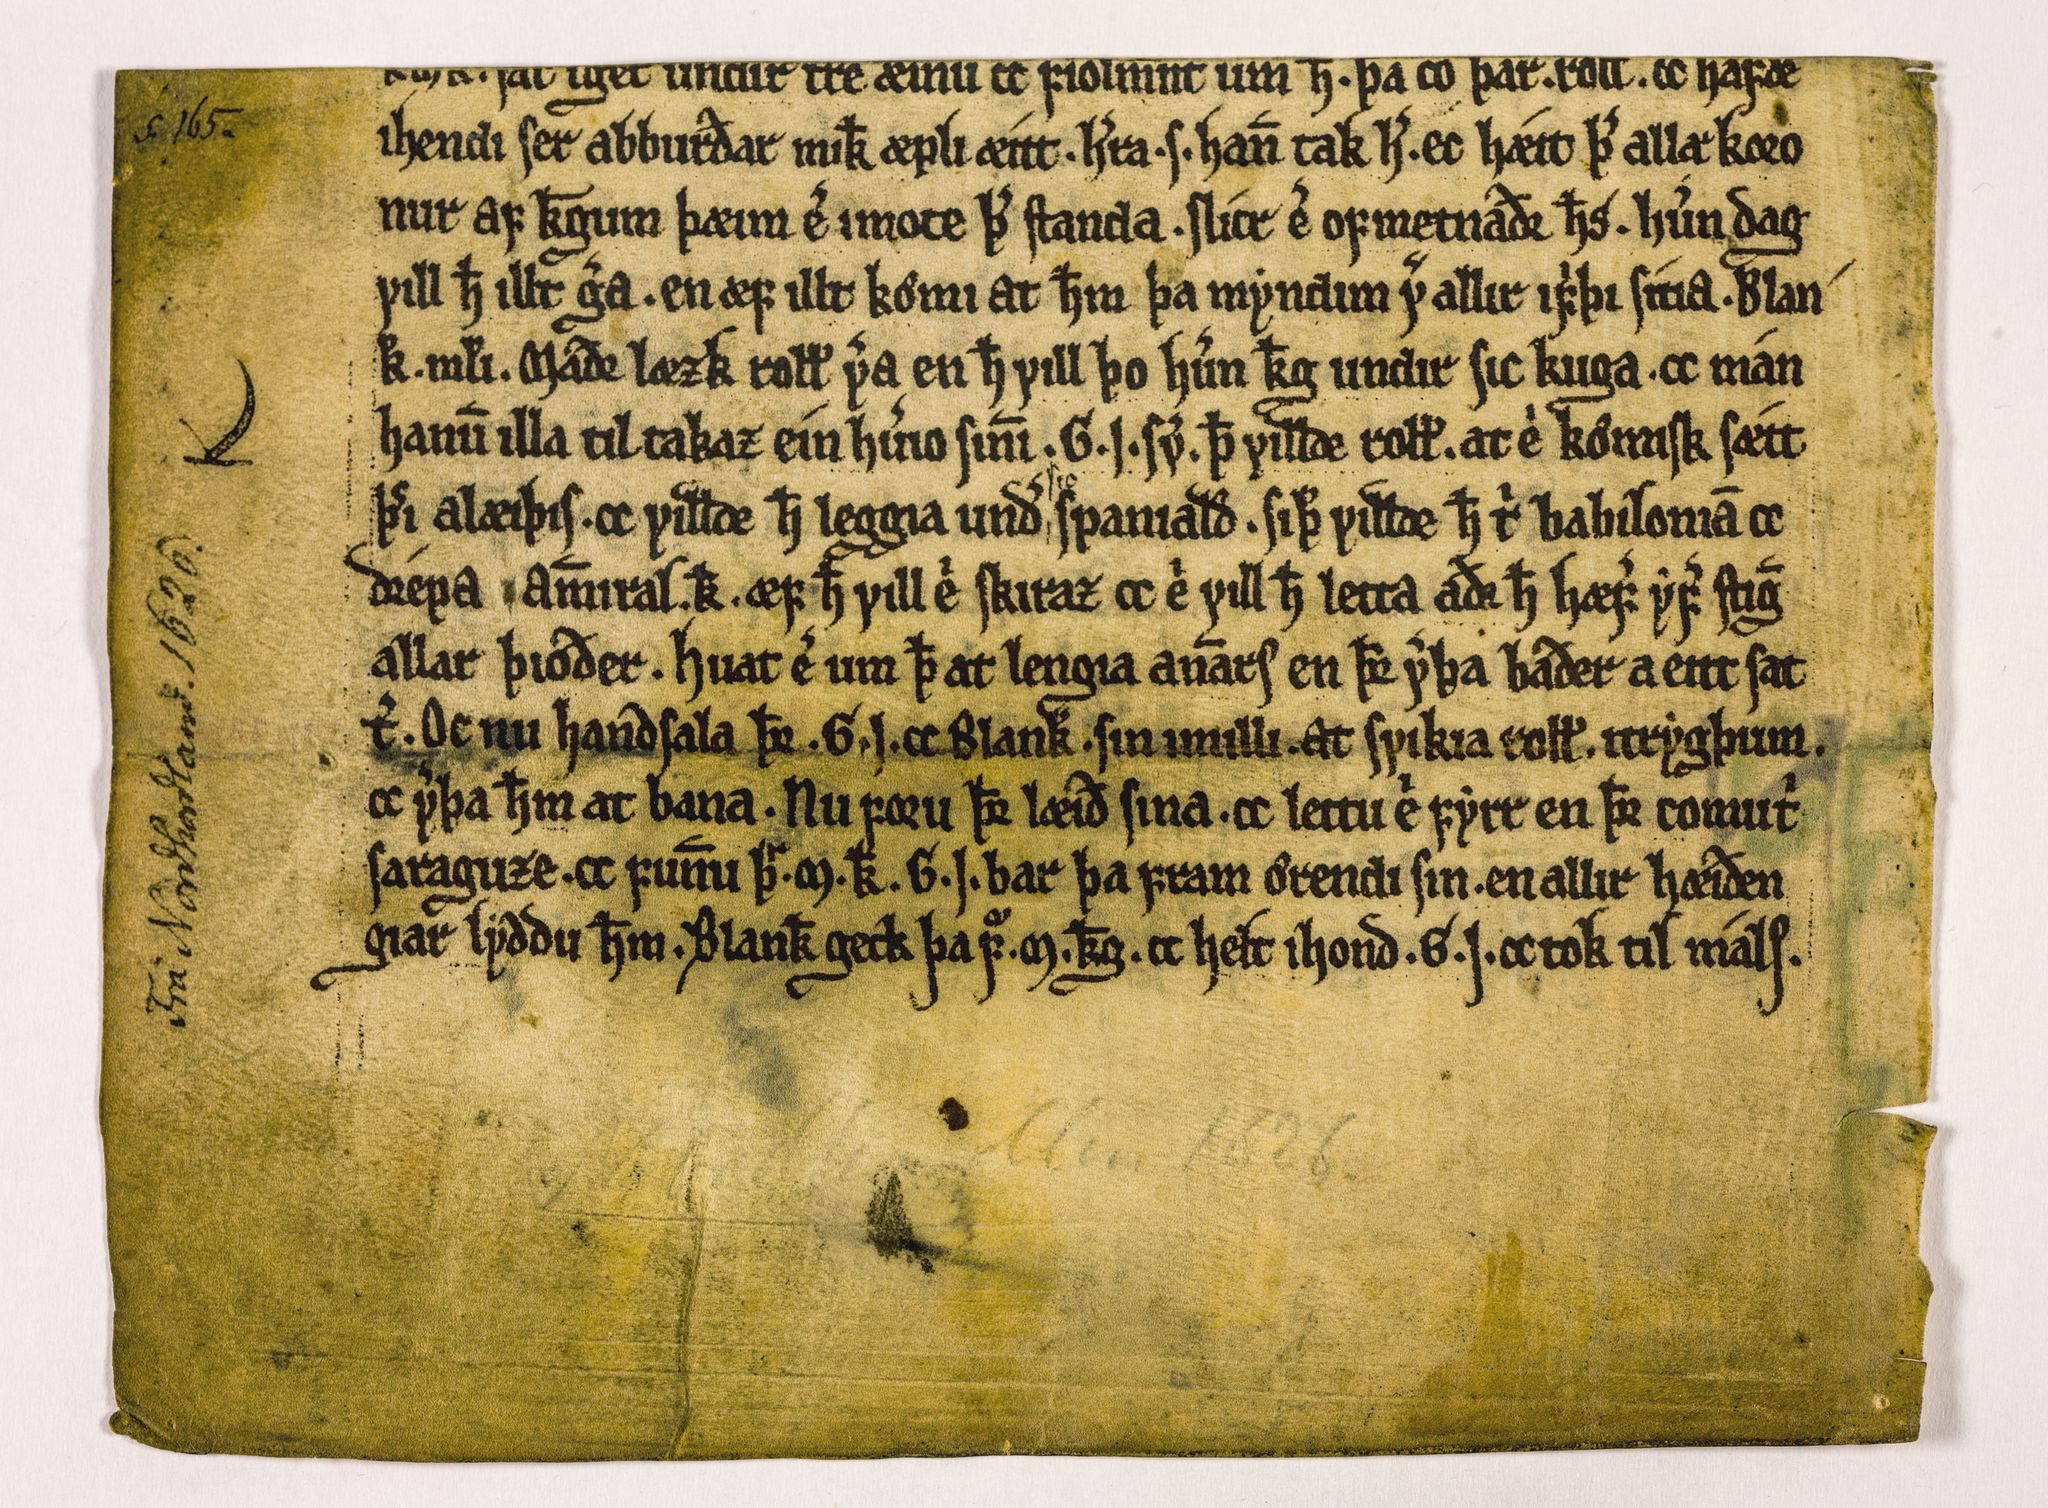 s. 165.
sat igær undir tre æinu oc ꝼiolmnt um h̄. þa co þar .roll. oc haꝼðe
ihendi ser abburðar mik̄ æpli æitt. h͛ra .s. han̄ tak h͛. ec hæit þ͛ allar koro
nur aꝼ k̄gum þæim e͛ imote þ͛ standa. slict e͛ oꝼmetnaðe h̄s. hu͛n dag
vill h̄ illt g͛a. en æꝼ illt kømi at h̄m þa myndim v͛ allir iꝼ͛þi sitia. Blan
k̄. mli. Maðe læzk roll v͛a en h̄ vill þo hu͛n k̄g undir sic kuga. oc mán
hanū illa til takaz ein hu͛io sinī. G. J. sv͛. þ̄ villde roll. at e͛ kømisk sætt
þ͛i alæiþis. oc villde h̄ leggia und͛ sic spanialð. siþ̄ villde h̄ t͛ babiloniā oc
drepa am̄iral. k̄. æꝼ h̄ vill e͛ skiraz oc e͛ vill h̄ letta aðr h̄ hæꝼ͛ yꝼ͛ stiḡ
allar þioðer. huat e͛ um þ̄ at lengia an̄ars en þr̄ v͛þa baðer a eitt sat
t͛. Oc nu handsala þr̄ .G. J. oc Blank̄. sin imilli. At svikia roll. itrygþum.
oc v͛þa h̄m at bana. Nu ꝼoru þr̄ læið sina. oc lettu e͛ ꝼyrr en þr̄ comu t͛
saraguze. oc ꝼun̄u þ͛ .M. k̄. G. J. bar þa ꝼram ørendi sin. en allir hæiðen
giar lyddu h̄m. Blank̄ geck þa ꝼ͛ .M. k̄g. oc helt ihond .G. J. oc tok til máls.
Fra Nordhordland. 1626.
K
1626